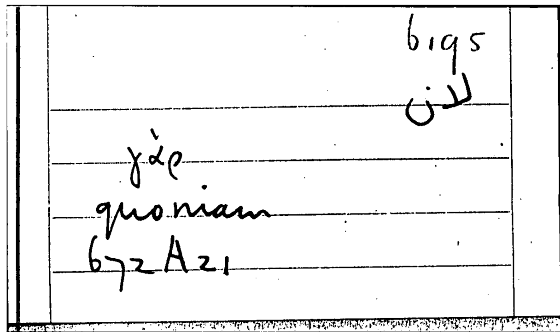 6195
لان
γὰρ
quoniam
672 A 21